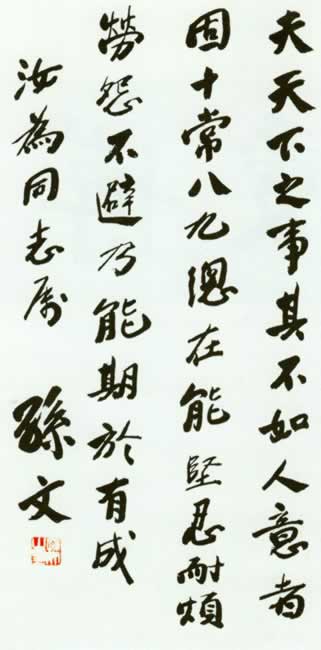 夫天下之事其不如人意者
固十常八九總在能堅忍耐煩
勞怨不避乃能期於有成
汝為同志屬
孫文